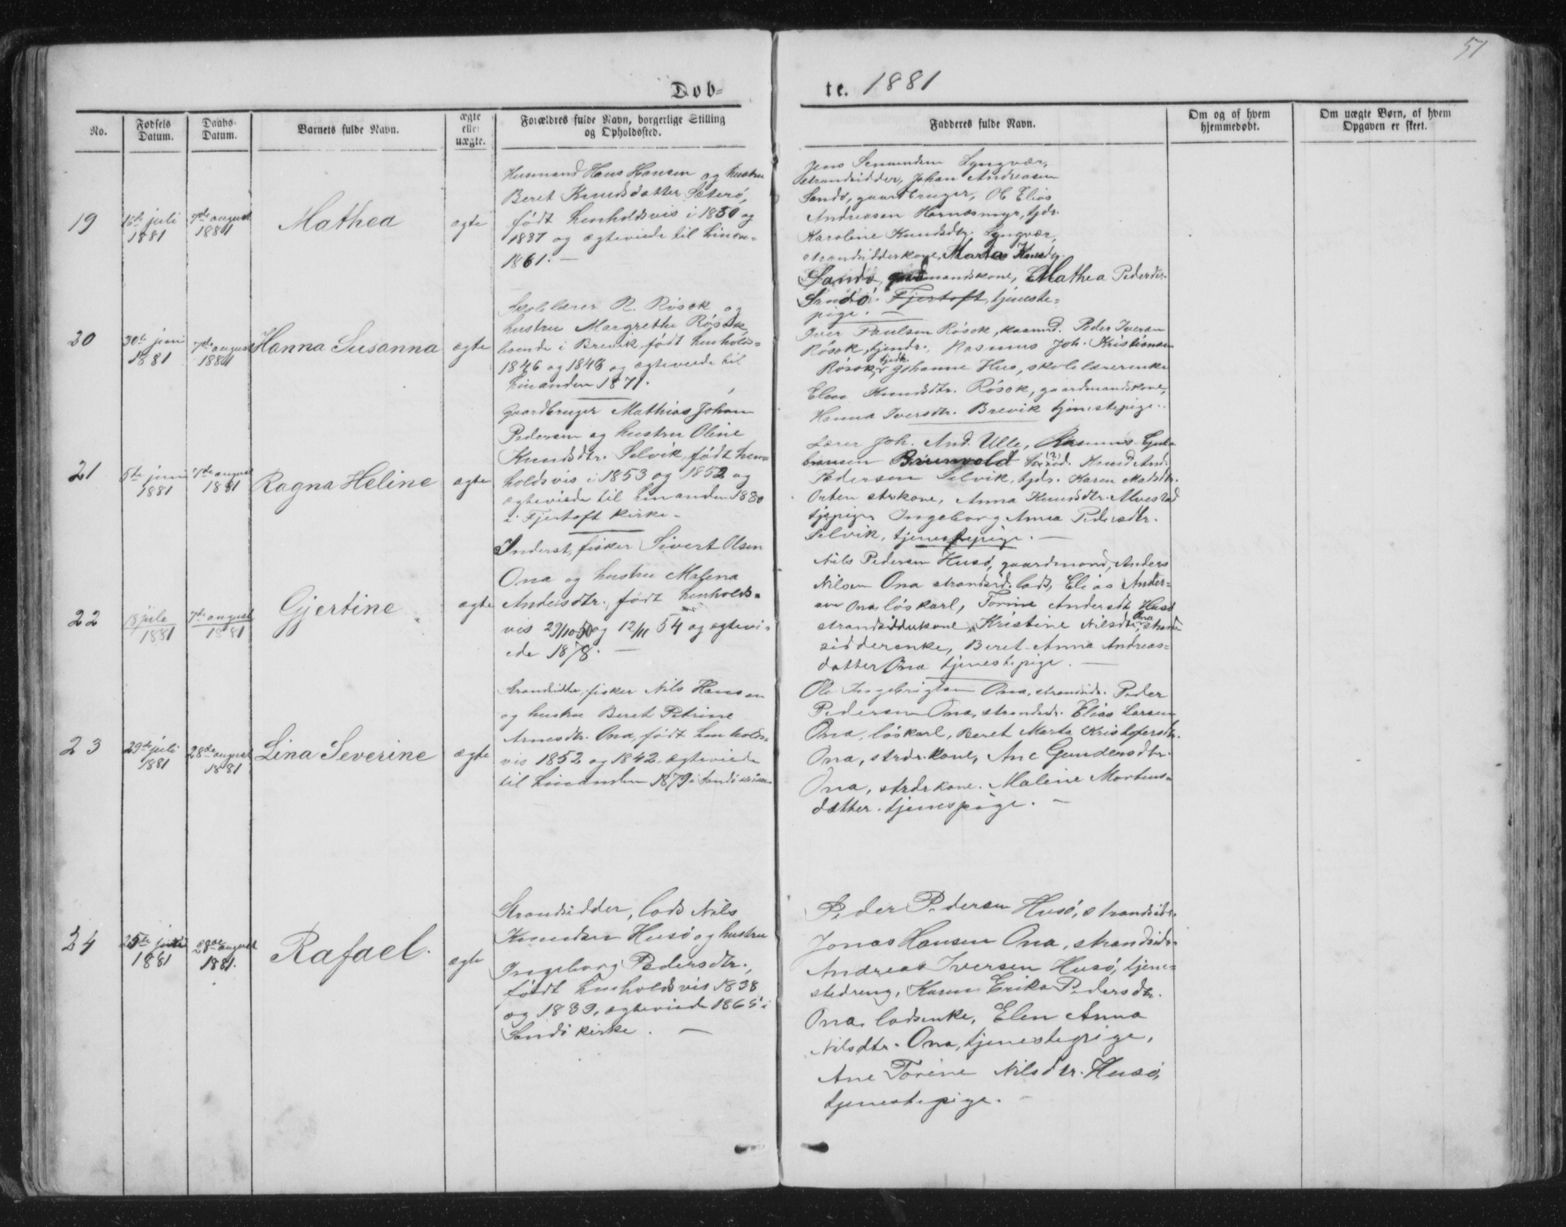 51
Døb-
te. 1881
No.
Fødsels Datum.
Daabs-Datum.
Barnets fulde Navn.
ægte eller uægte.
Forældres fulde Navn, borgerlige Stilling og Opholdssted.
Fadderes fulde Navn.
Om og af hvem hjemmedøbt.
Om uægte Børn, af hvem Opgaven er skeet.
19
juli 1881
7de august 1881
Mathea
ægte
Husmand Hans Hansen og hustru
Beret Knudsdatter Sæterø,
født henholdsvis i 1830 og
1837 og ægteviede til hinan-
1861. —
Jens Lyngvær,
strandsidder, Johan Andreasen
Sandø, gaardbruger, Ol Elias
Andreasen Harnæsmyr, tjds.
Karoline Knudsdtr. Lyngvær,
strandsidderkone, Marta
Sandø, mandskone, Mathea Pedersdtr.
Sandø. Fjørtoft, tjeneste-
pige. —
20
30te juni 1881
7de august 1881
Hanna Susanna
ægte
Skolelærer R. Røsok og
hustru Margrethe Røsok,
boende i Brevik, født henholds-
1846 og 1843 og ægteviede til
hinanden 1871.
Iver Paulsen Røsok, Peder Iversen
Røsok, tjendr., Rasmus Joh. Kristiansen
Røsok, tjdr. Johanne Hus, skolelærerenke
Elen Knudsdtr. Røsok, gaardmandskone,
Hanna Iversdtr. Brevik tjenestepige.
21
5te juni 1881
7de august 1881
Ragna Heline
ægte
Gaardbruger Mathias Johan
Pedersen og hustru Oline
Knudsdtr. Selvik, født hen-
holdsvis i 1853 og 1852 og
ægteviede til hinanden 1880
i Fjørtoft kirke. -
Lærer Joh. And. Ulle, Rasmus
Brunvold Knud And.
Pedersen Selvik, tjds. Karen Matsdtr.
Orten strkone, Anna Knudsdtr. Alvestad
tjepige, Ingeborg Anna Pedersdtr.
Selvik, tjenestepige. —
22
juli 1881
7de august 1881
Gjertine
ægte
Inderst, fisker Sivert Olsen
Ona og hustru Malena
Andersdtr., født henholds-
vis 29/10 50 og 12/11 54 og ægtevi-
ede 1878. —
Nils Pedersen Husø, gaardmand, Anders
Nilsen Ona strandsid. lods, Elias Anders-
sen Ona løskarl, Torine Andersdt. Husø
strandsidderkone, Kristine Nilsdtr. Ona, strand-
sidderenke, Beret Anna Andreas-
datter Ona tjenestepige. —
23
29de juli 1881
28de august 1881
Lina Severine
ægte
Strandsidder, fisker Nils Hansen
og hustru Beret Petrine
Arnesdtr. Ona, født henholds-
vis 1852 og 1842 ægteviede
til hinanden 1879 i Sandø kirke
Ole Ingebrigtsen Ona, strandsidr. Peder
Pedersen Ona, strandsidr. Elias Larsen
Ona, løskarl, Beret Marta Kristofersdtr.
Ona, strdr.kone, Ane Gundersdtr.
Ona, strdrkone. Malene Mortens-
datter. tjenespige. —
24
25de 1881
28de august 1881.
Rafael.
ægte
Strandsidder, lods Nils
Knudsen Husø og hustru
Ingeborg Pedersdtr.,
født henholdsvis 1838
og 1839, ægteviede 1865 i
Sandø kirke. —
Peder Pedersen Husø, strandsidr.
Jonas Hansen Ona, strandsidr.
Andreas Iversen Husø, tjene-
stedreng, Karen Erika Pedersdtr.
Ona, lodsenke, Elen Anna
Nilsdtr. Ona, tjenestepige,
Ane Torine Nilsdtr. Husø,
tjenestepige. -